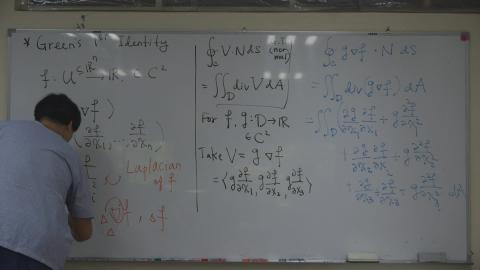 * Green's 1st Identity
f : U ⊆ ℝⁿ → ℝ, ∈ C²
∇f ⟩
( ∂f/∂x₁, ..., ∂f/∂xₙ )
Laplacian
of f
Δ f, Δf
Δ
∮_C V·N dS (normal)
= ∬_D div V dA
For f, g : D → ℝ
∈ C²
Take V = g ∇f
= ⟨ g ∂f/∂x₁, g ∂f/∂x₂, g ∂f/∂x₃ ⟩
∮_C g ∇f · N dS
= ∬_D div(g∇f) dA
= ∬_D ( ∂g/∂x₁ ∂f/∂x₁ + g ∂²f/∂x₁²
+ ∂g/∂x₂ ∂f/∂x₂ + g ∂²f/∂x₂²
+ ∂g/∂x₃ ∂f/∂x₃ + g ∂²f/∂x₃² ) dA